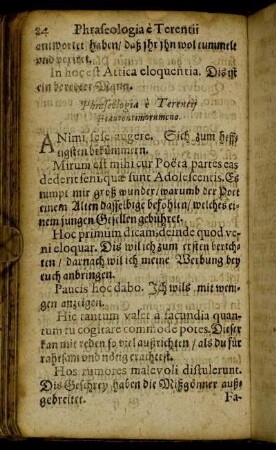 24 Phraseologia è Terentii
antwortet haben / daß jhr jhn wol tummelt
und
In hoc est Attica eloquentia. Dis ist
ein beredter Mann.
Phraseologia è Terentij
Heautontimorumeno.
ANimi sese augere. Sich zum hefftigsten
bekümmern.
Mirum est mihi cur Poëta partes eas
dederit seni, quæ sunt Adolescentis. Es
nimpt mir groß wunder / warumb der Poet
einem Alten dasselbige befohlen / welches einem
jungen Gesellen gebühret.
Hoc primum dicam, deinde quod veni
eloquar. Dis wil ich zum ersten berichten
/ darnach wil ich meine Werbung bey
euch anbringen.
Paucis hoc dabo. Ich wils mit wenigen
anzeigen.
Hic tantum valet a facundia quantum
tu cogitare commode potes. Dieser
kan mit reden so viel außrichten / als du für
rahtsam und nötig erachtest.
Hos rumores malevoli distulerunt.
Dis Geschrey haben die Mißgönner außgebreitet.
Fa-